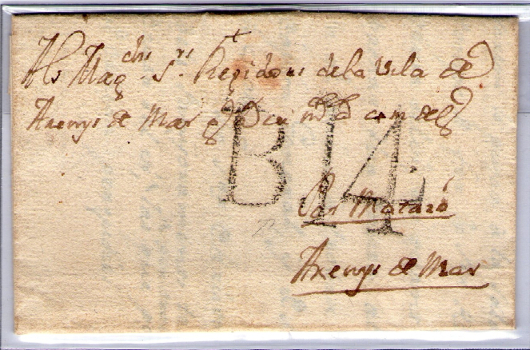 +
Als Mag.chs S.rs Regidors de la Vila de
Arenys de Mar
B14
Par Mataró
Arenys de Mar